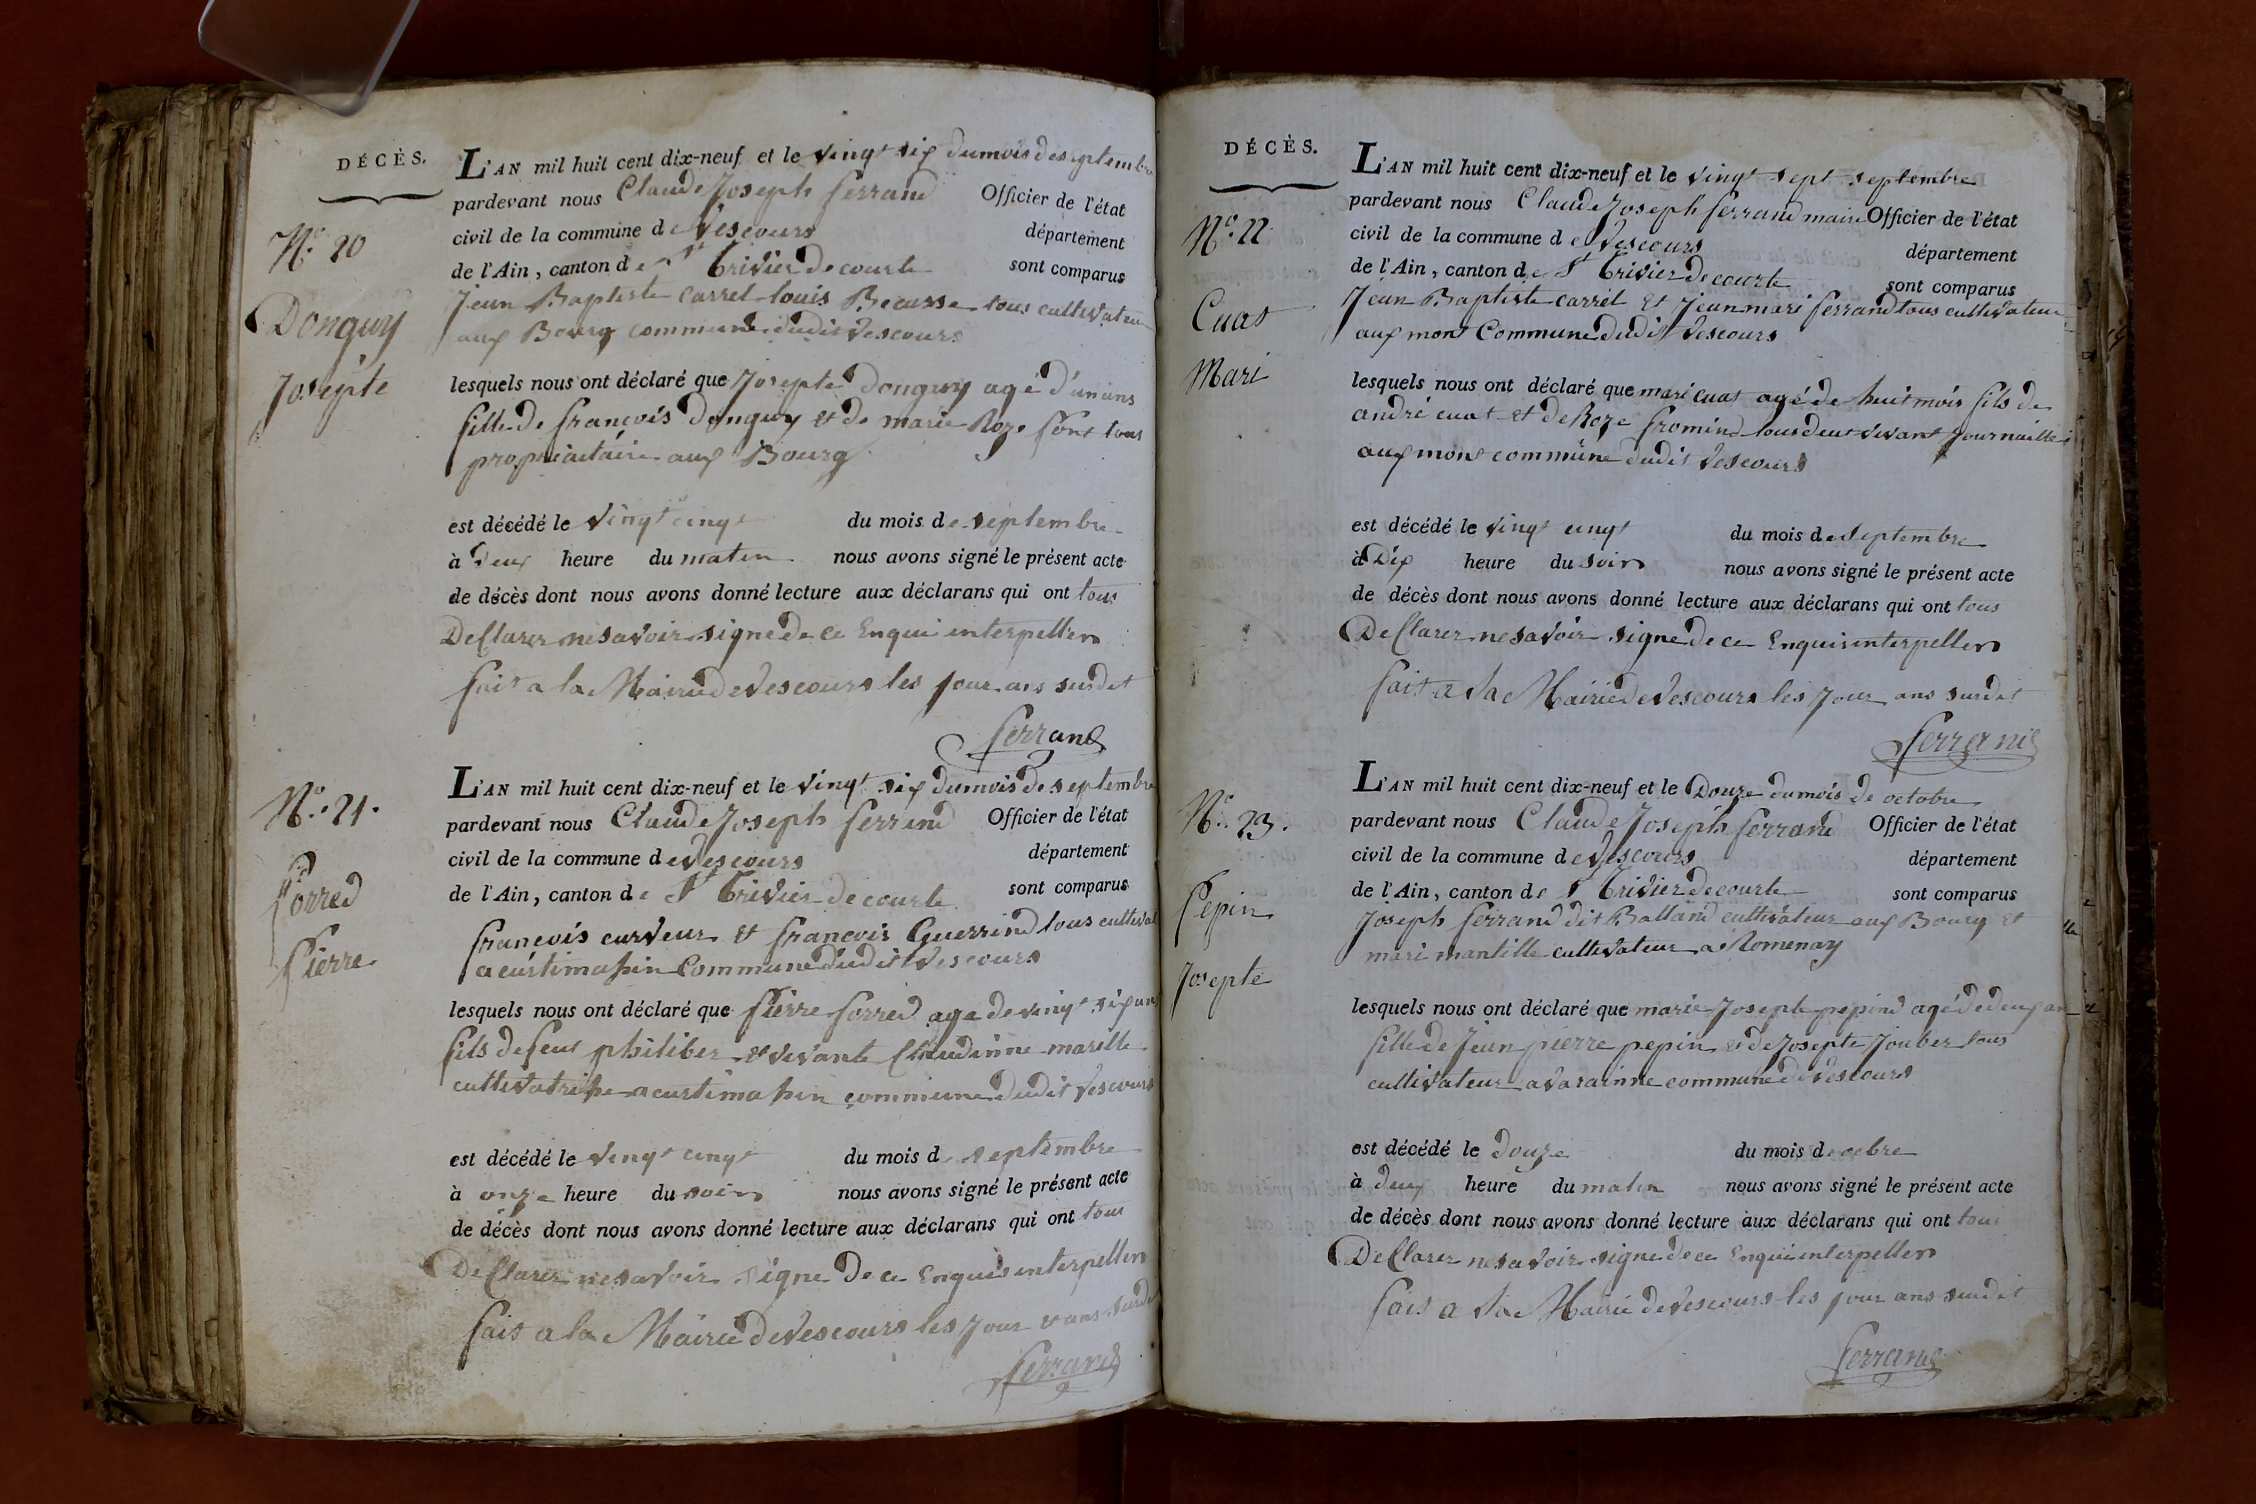 DÉCÈS.
N.o 20
Donguy
Josepte
L'AN mil huit cent dix-neuf et le vingt six du mois de septembre
pardevant nous Claude Joseph ferrand Officier de l'état
civil de la commune de Vescours département
de l'Ain, canton de St trivier de courte sont comparus
Jean Baptiste Carrel louis Becasse tous cultivateur
aux Bourg commune dudit Vescours
lesquels nous ont déclaré que Josepte donguy agé d'un ans
fille de françois donguy et de marie Roze font tous
propriaitáire aux Bourg
est décédé le vingt cinqt du mois de septembre
à deux heure du maten nous avons signé le présent acte
de décès dont nous avons donné lecture aux déclarans qui ont tous
Declarer ne savoir signe de ce Enqui interpeller
fait a la Mairie de Vescours les jour ans surdit
ferrand
N.o 21.
forred
Pierre
L'AN mil huit cent dix-neuf et le vingt six du mois de septembre
pardevant nous Claude Joseph ferrend Officier de l'état
civil de la commune de Vescours département
de l'Ain, canton de St trivier de courte sont comparus
françois curveur et françois Guerrind tous cultivat
a curtimaţin Commune dudit Vescours
lesquels nous ont déclaré que Pierre forred age de vingt six ans
fils de feut philiber et vivante Claudinne marelle
cultivatriţe a curtimaţin commune dudit Vescours
est décédé le vingt cinqt du mois de septembre
à onze heure du soir nous avons signé le présent acte
de décès dont nous avons donné lecture aux déclarans qui ont tous
Declarer ne savoir signe de ce Enquis interpeller
fait a la Mairie de Vescours les jour et ans surdit
ferrand
DÉCÈS.
N.o 22
Cuat
Mari
L'AN mil huit cent dix-neuf et le vingt sept septembre
pardevant nous Claude Joseph ferrand maire Officier de l'état
civil de la commune de Vescours département
de l'Ain, canton de St trivier de courte sont comparus
Jean Baptiste carrel et Jean mari ferrand tous cultivateur
aux mont Commune dudit Vescours
lesquels nous ont déclaré que mari cuat agé de huit mois fils de
andré cuat et de Roze fromind tous deut vivant Journaillie
aux mont commune dudit Vescours
est décédé le vingt cinqt du mois de septembre
à Dix heure du soir nous avons signé le présent acte
de décès dont nous avons donné lecture aux déclarans qui ont tous
Declarer ne savoir signe de ce Enquis interpeller
fait a la Mairie de Vescours les Jour ans surdit
ferrand
N.o 23.
Pepin
Josepte
L'AN mil huit cent dix-neuf et le Douze du mois de octobre
pardevant nous Claude Joseph ferrand Officier de l'état
civil de la commune de Vescours département
de l'Ain, canton de St trivier de courte sont comparus
Joseph ferrand dit Balland cultivateur aux Bourg et
mari mantille cultivateur a Romenay
lesquels nous ont déclaré que marie Josepte pepind agé de deux an
fille de Jean pierre pepin et de Josepte Jouber tous
cultivateur a varainne commune de Vescours
est décédé le douze du mois de ocbre
à deux heure du maten nous avons signé le présent acte
de décès dont nous avons donné lecture aux déclarans qui ont tous
Declarer ne savoir signe de ce Enqui interpeller
fait a la Mairie de Vescours les jour ans surdit
ferrand